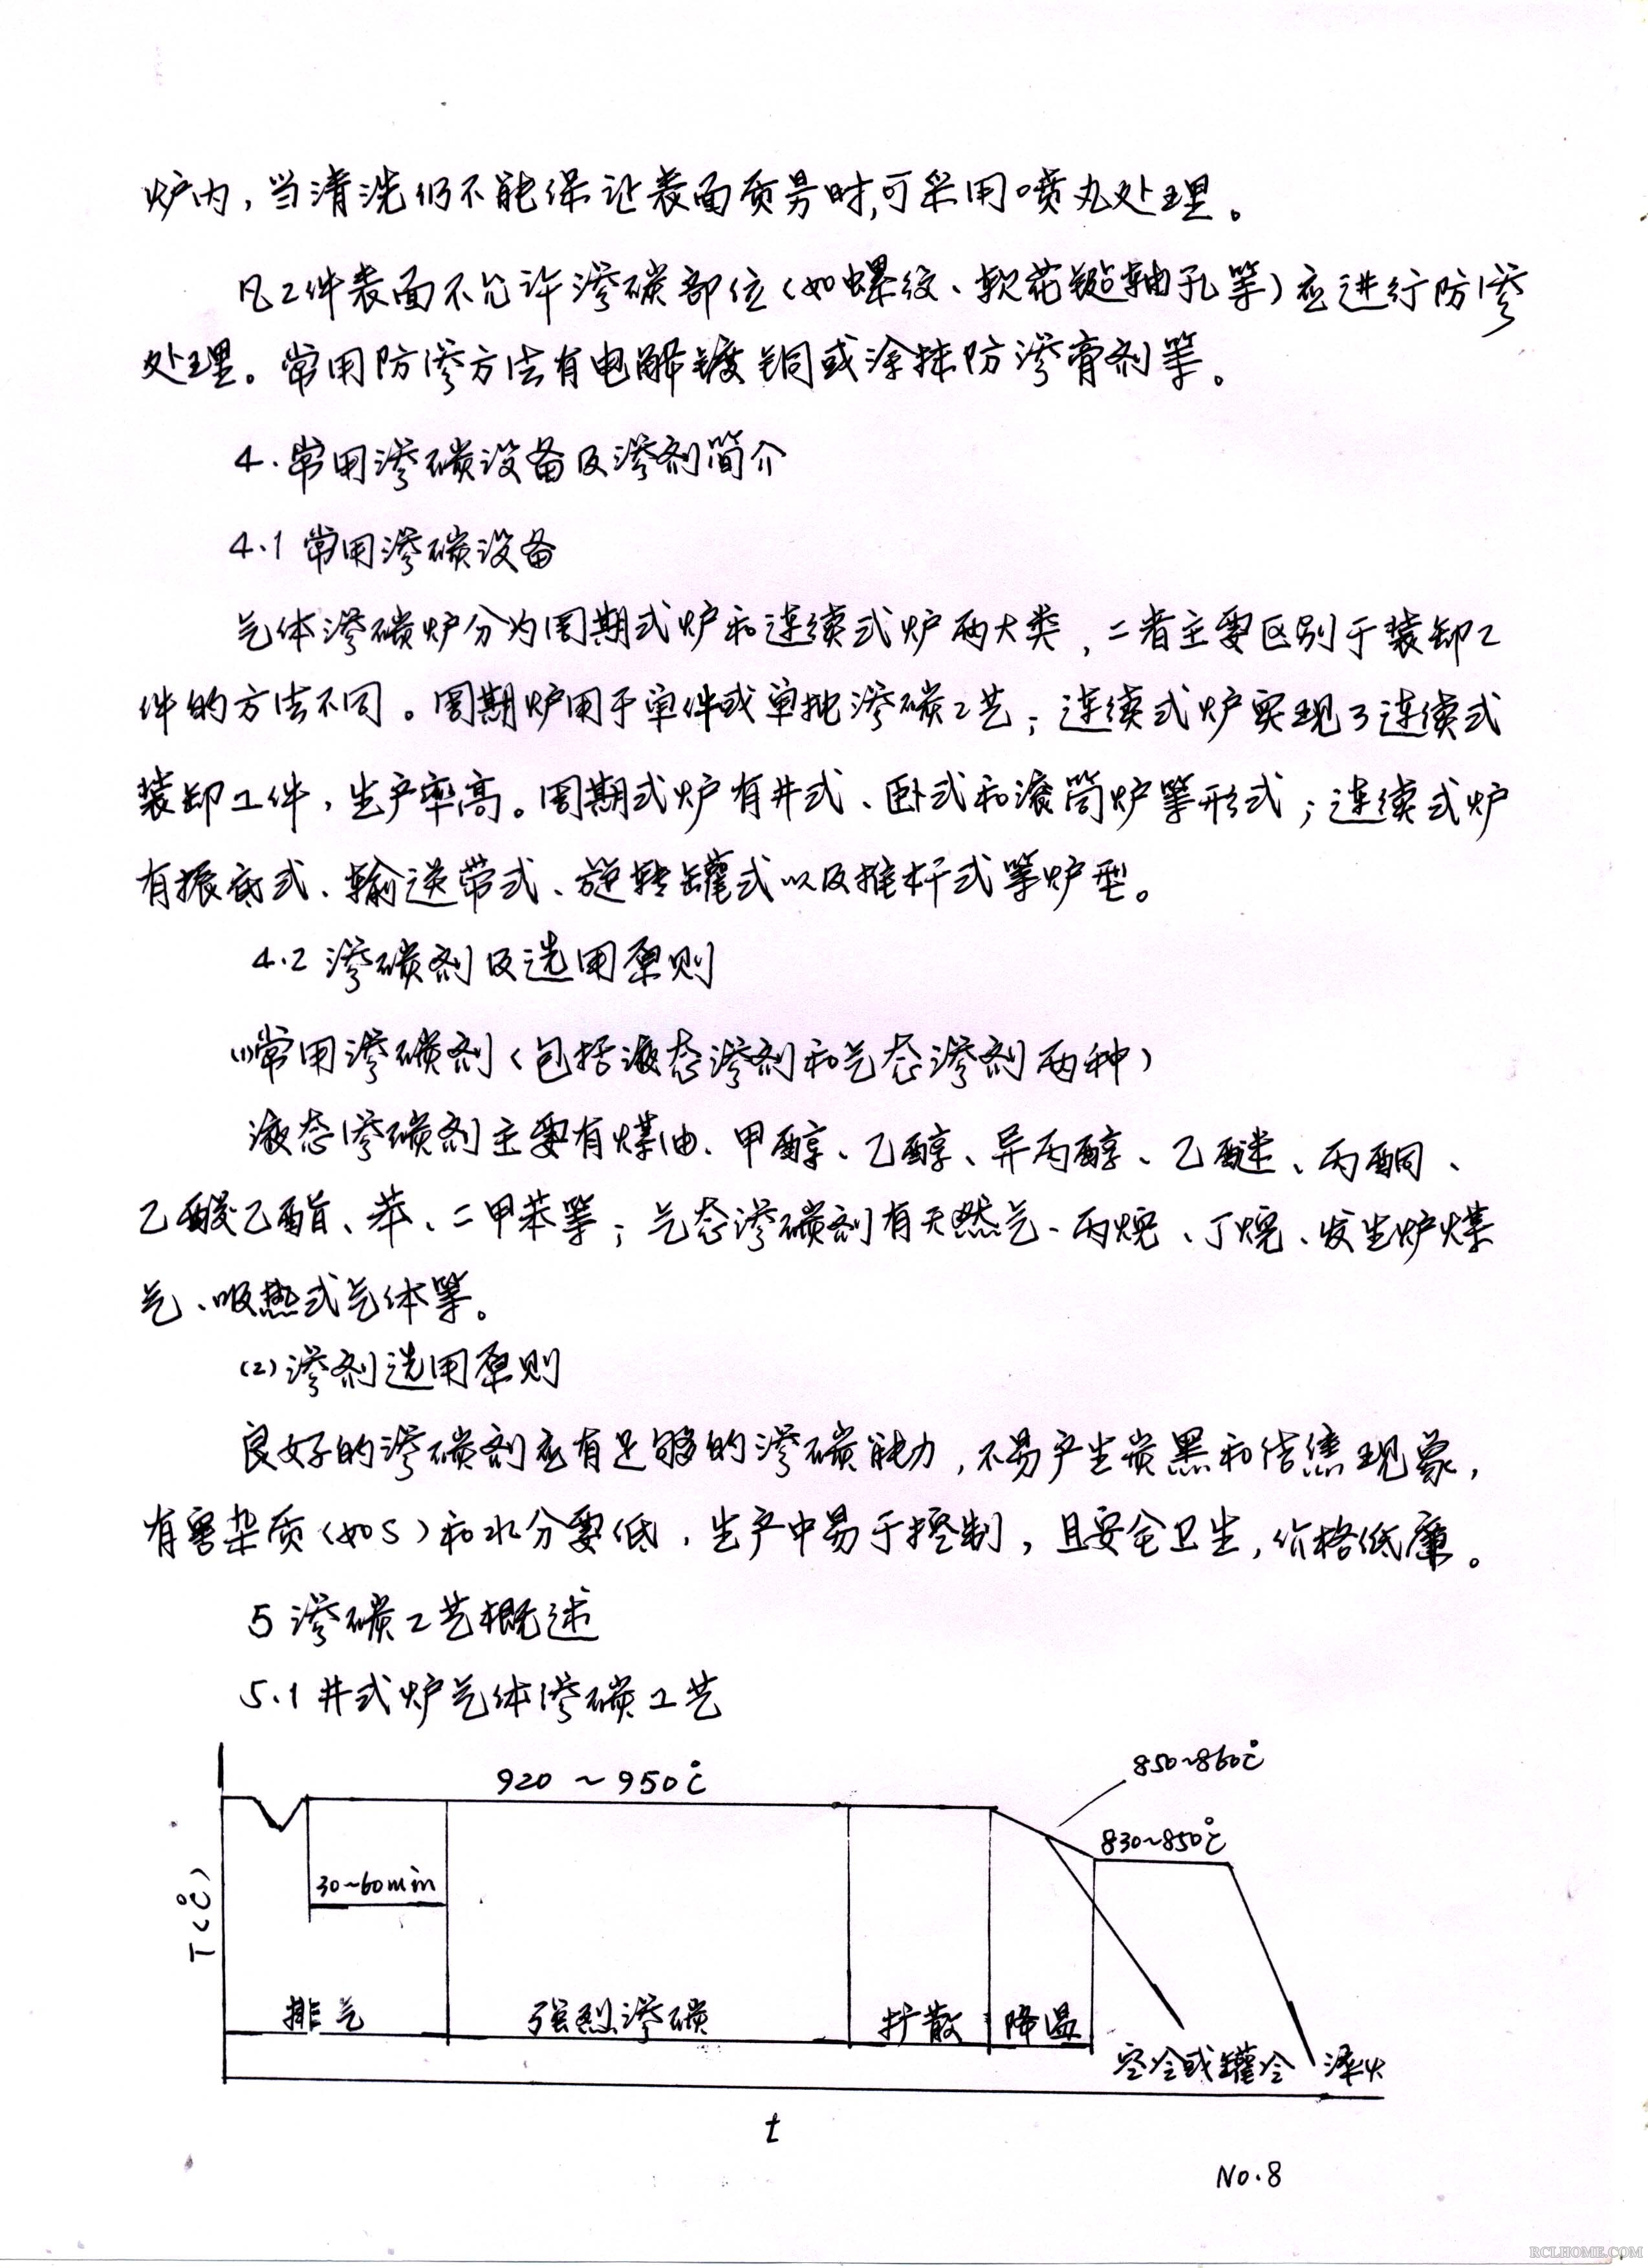 炉内,当清洗仍不能保证表面质量时,可采用喷丸处理。
凡工件表面不允许渗碳部位(如螺纹、软花键轴孔等)应进行防渗
处理。常用防渗方法有电解镀铜或涂抹防渗膏剂等。
4.常用渗碳设备及渗剂简介
4.1 常用渗碳设备
气体渗碳炉分为周期式炉和连续式炉两大类,二者主要区别于装卸工
件的方法不同。周期炉用于单件或单批渗碳工艺;连续式炉实现了连续式
装卸工件,生产率高。周期式炉有井式、卧式和滚筒炉等形式;连续式炉
有振底式、输送带式、旋转罐式以及推杆式等炉型。
4.2 渗碳剂及选用原则
(1)常用渗碳剂(包括液态渗剂和气态渗剂两种)
液态渗碳剂主要有煤油、甲醇、乙醇、异丙醇、乙醚、丙酮、
乙酸乙酯、苯、二甲苯等;气态渗碳剂有天然气、丙烷、丁烷、发生炉煤
气、吸热式气体等。
(2)渗剂选用原则
良好的渗碳剂应有足够的渗碳能力,不易产生炭黑和结焦现象,
有害杂质(如S)和水分要低,生产中易于控制,且安全卫生,价格低廉。
5 渗碳工艺概述
5.1 井式炉气体渗碳工艺
850~860℃
920~950℃
830~850℃
30~60min
T(℃)
排气 强烈渗碳 扩散 降温
空冷或罐冷 淬火
t
No.8
RCLHOME.COM